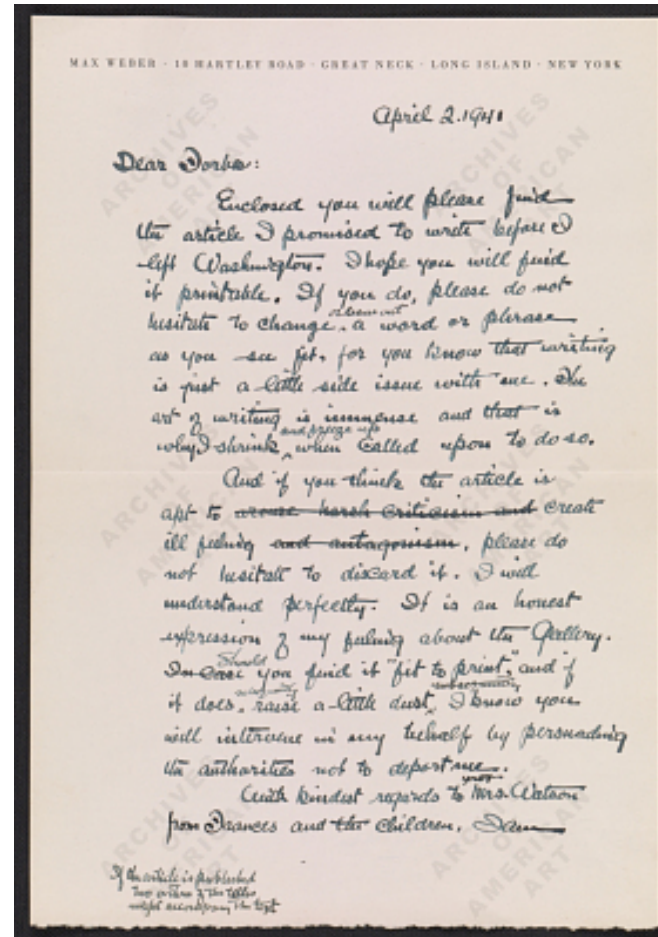 MAX WEBER · 10 HARTLEY ROAD · GREAT NECK · LONG ISLAND · NEW YORK
April 2. 1941
Dear Forbes:
Enclosed you will please find
the article I promised to write before I
left Washington. I hope you will find
it printable. If you do, please do not
hesitate to change, a word or phrase
as you see fit, for you know that writing
is just a little side issue with me. The
art of writing is immense and that is
why I shrink and freeze up when called upon to do so.
And if you think the article is
apt to arouse harsh criticism and create
ill feeling and antagonism, please do
not hesitate to discard it. I will
understand perfectly. It is an honest
expression of my feeling about the Gallery.
In case Should you find it "fit to print," and if
it does, raise a little dust, I know you
will intervene in my behalf by persuading
the authorities not to deport me.
With kindest regards to you Mrs. Watson
from Frances and the children, I am
If the article is published
accompany the text
ARCHIVES
OF
AMERICAN
ART